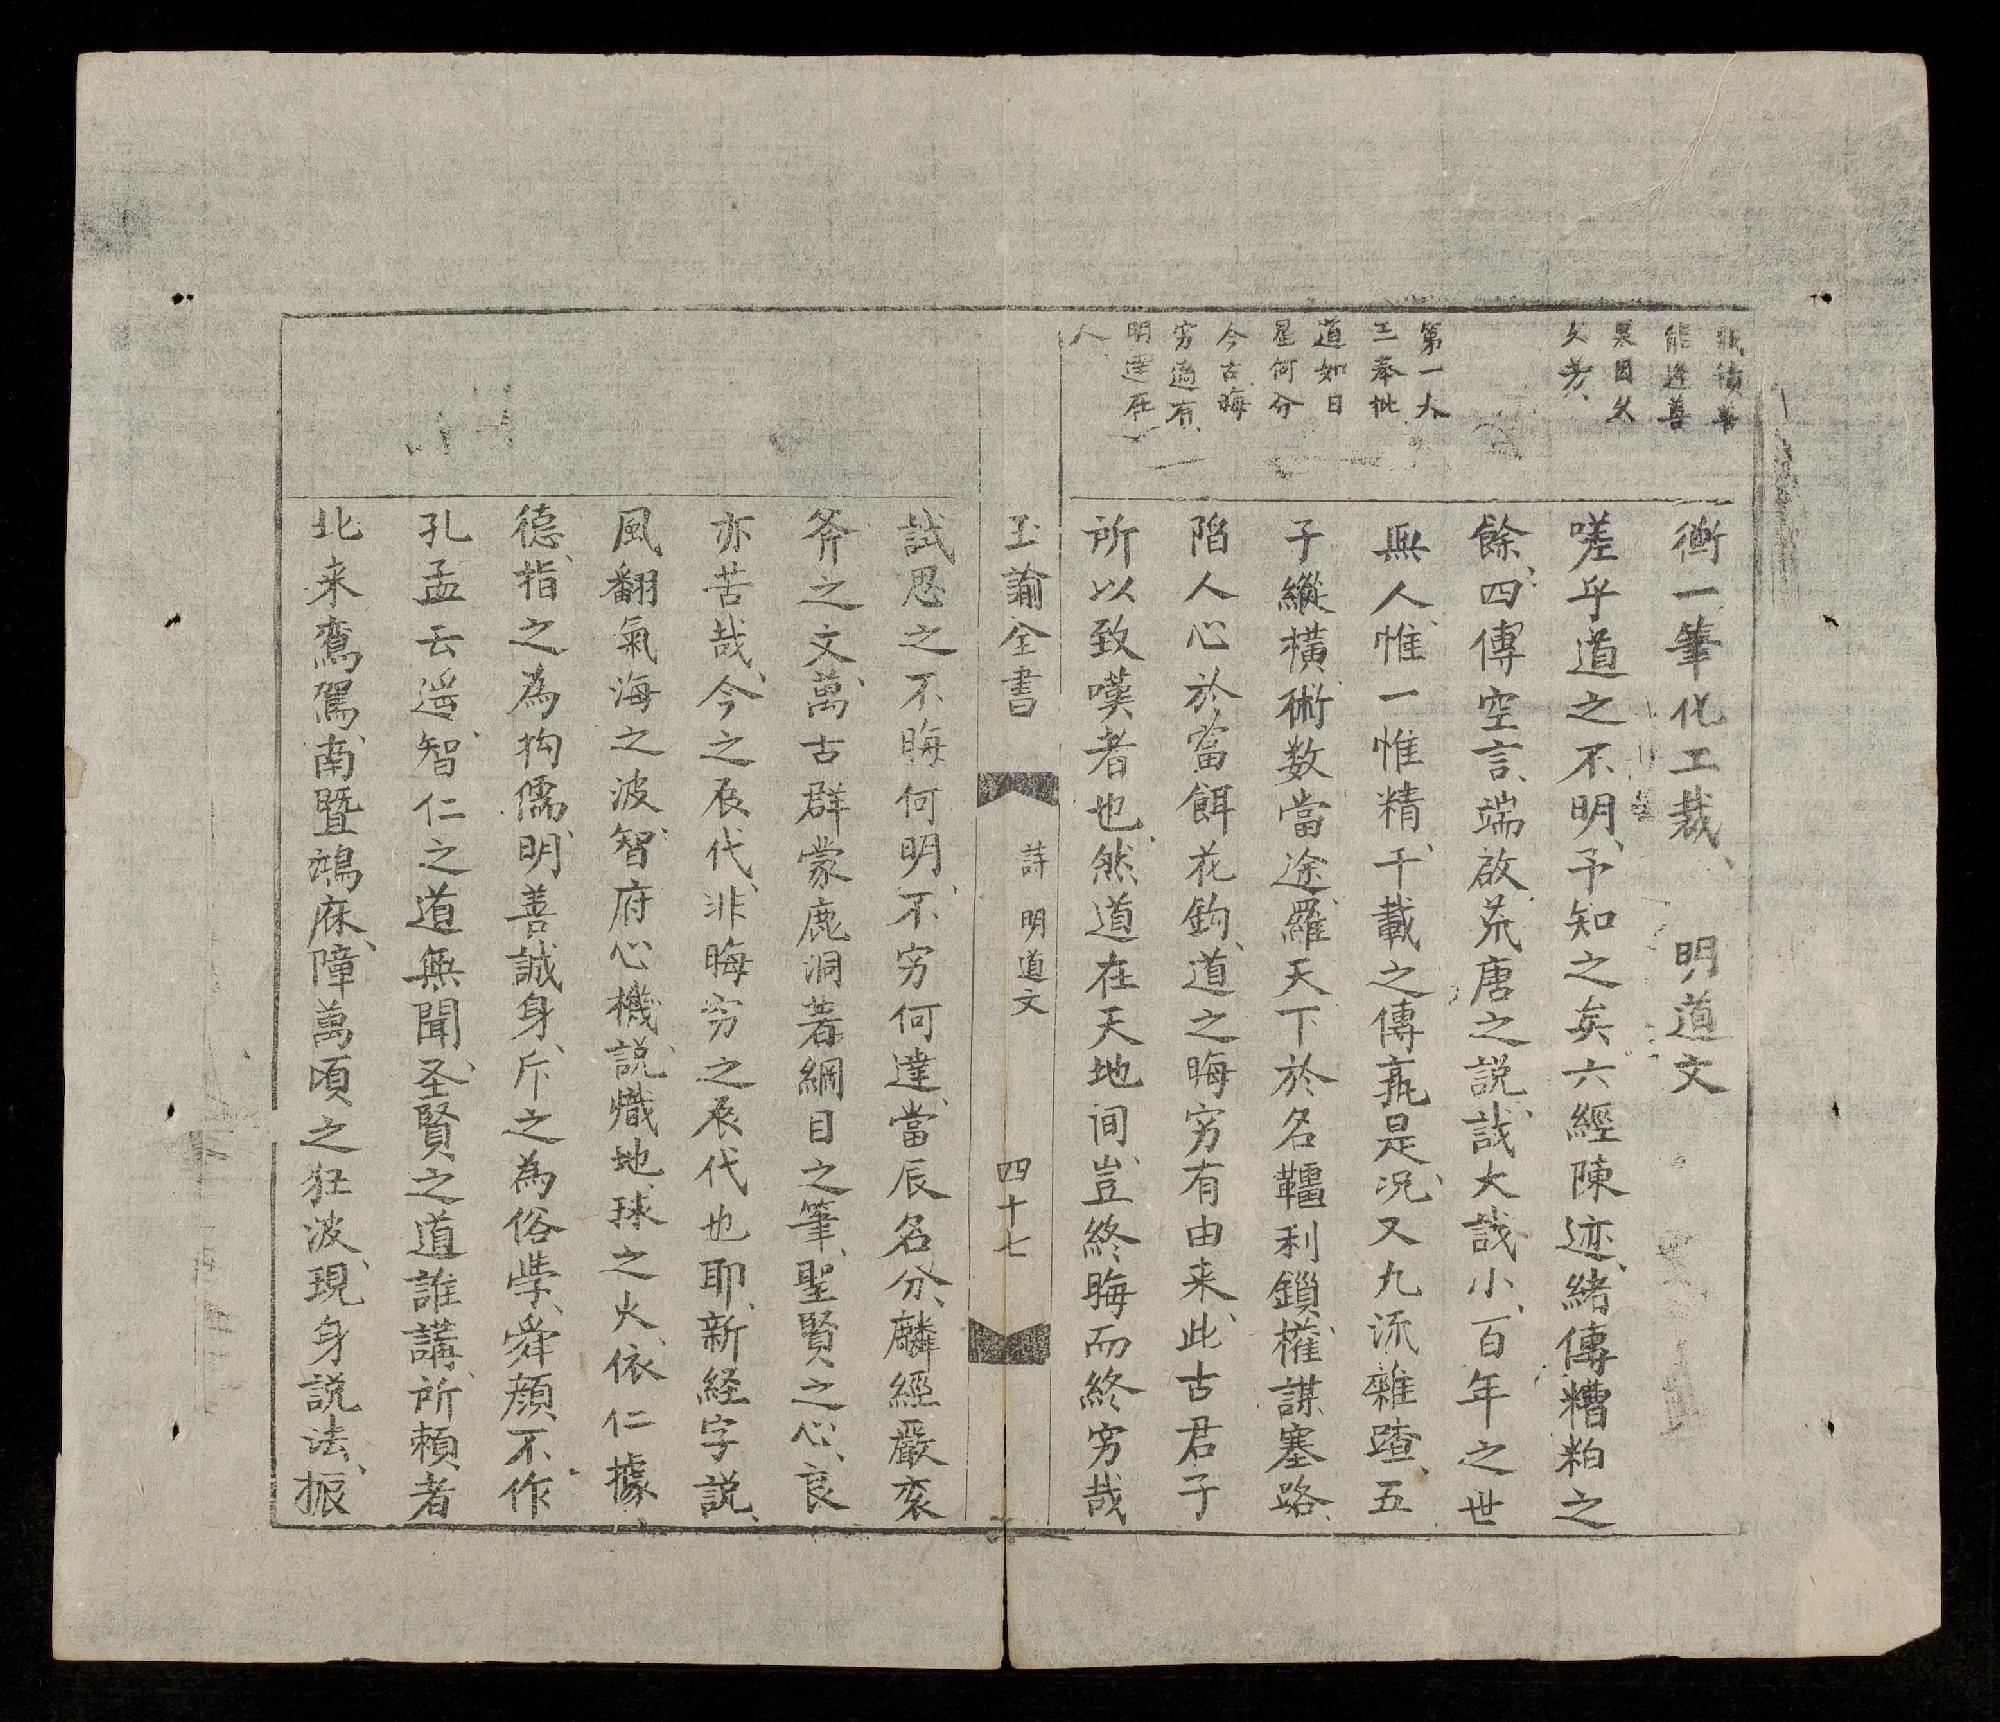 能進善
果因久
久芳
第一大
三奉批
道如日
星何分
今古晦
穷過有
明運在
人
衡一筆化工裁、 明道文
嗟乎道之不明、予知之矣、六經陳迹、緒傳糟粕之
餘、四傳空言、端啟荒唐之説、談大談小、百年之世
無人、惟一惟精、千載之傳孰是、况又九流雜蹅、五
子縱橫、術数當途、羅天下於名韁利鎖、權謀塞路、
陷人心於當餌花鈎、道之晦穷有由来、此古君子
所以致嘆者也、然道在天地间、豈終晦而終穷哉
玉諭全書
詩 明道文
四十七
試思之不晦何明、不穷何達、當辰名分、麟經嚴衮
斧之文、萬古群蒙、鹿洞著綱目之筆、聖賢之心、良
亦苦哉、今之辰代、非晦穷之辰代也耶、新経字説、
風翻氣海之波、智府心機、説熾地球之火、依仁據
德、指之為拘儒、明善誠身、斥之為俗學、舜顔不作
孔孟云遥、智仁之道無聞、圣賢之道誰講、所頼者
北来鸞駕、南暨鴻庥、障萬頃之狂波、現身説法、振